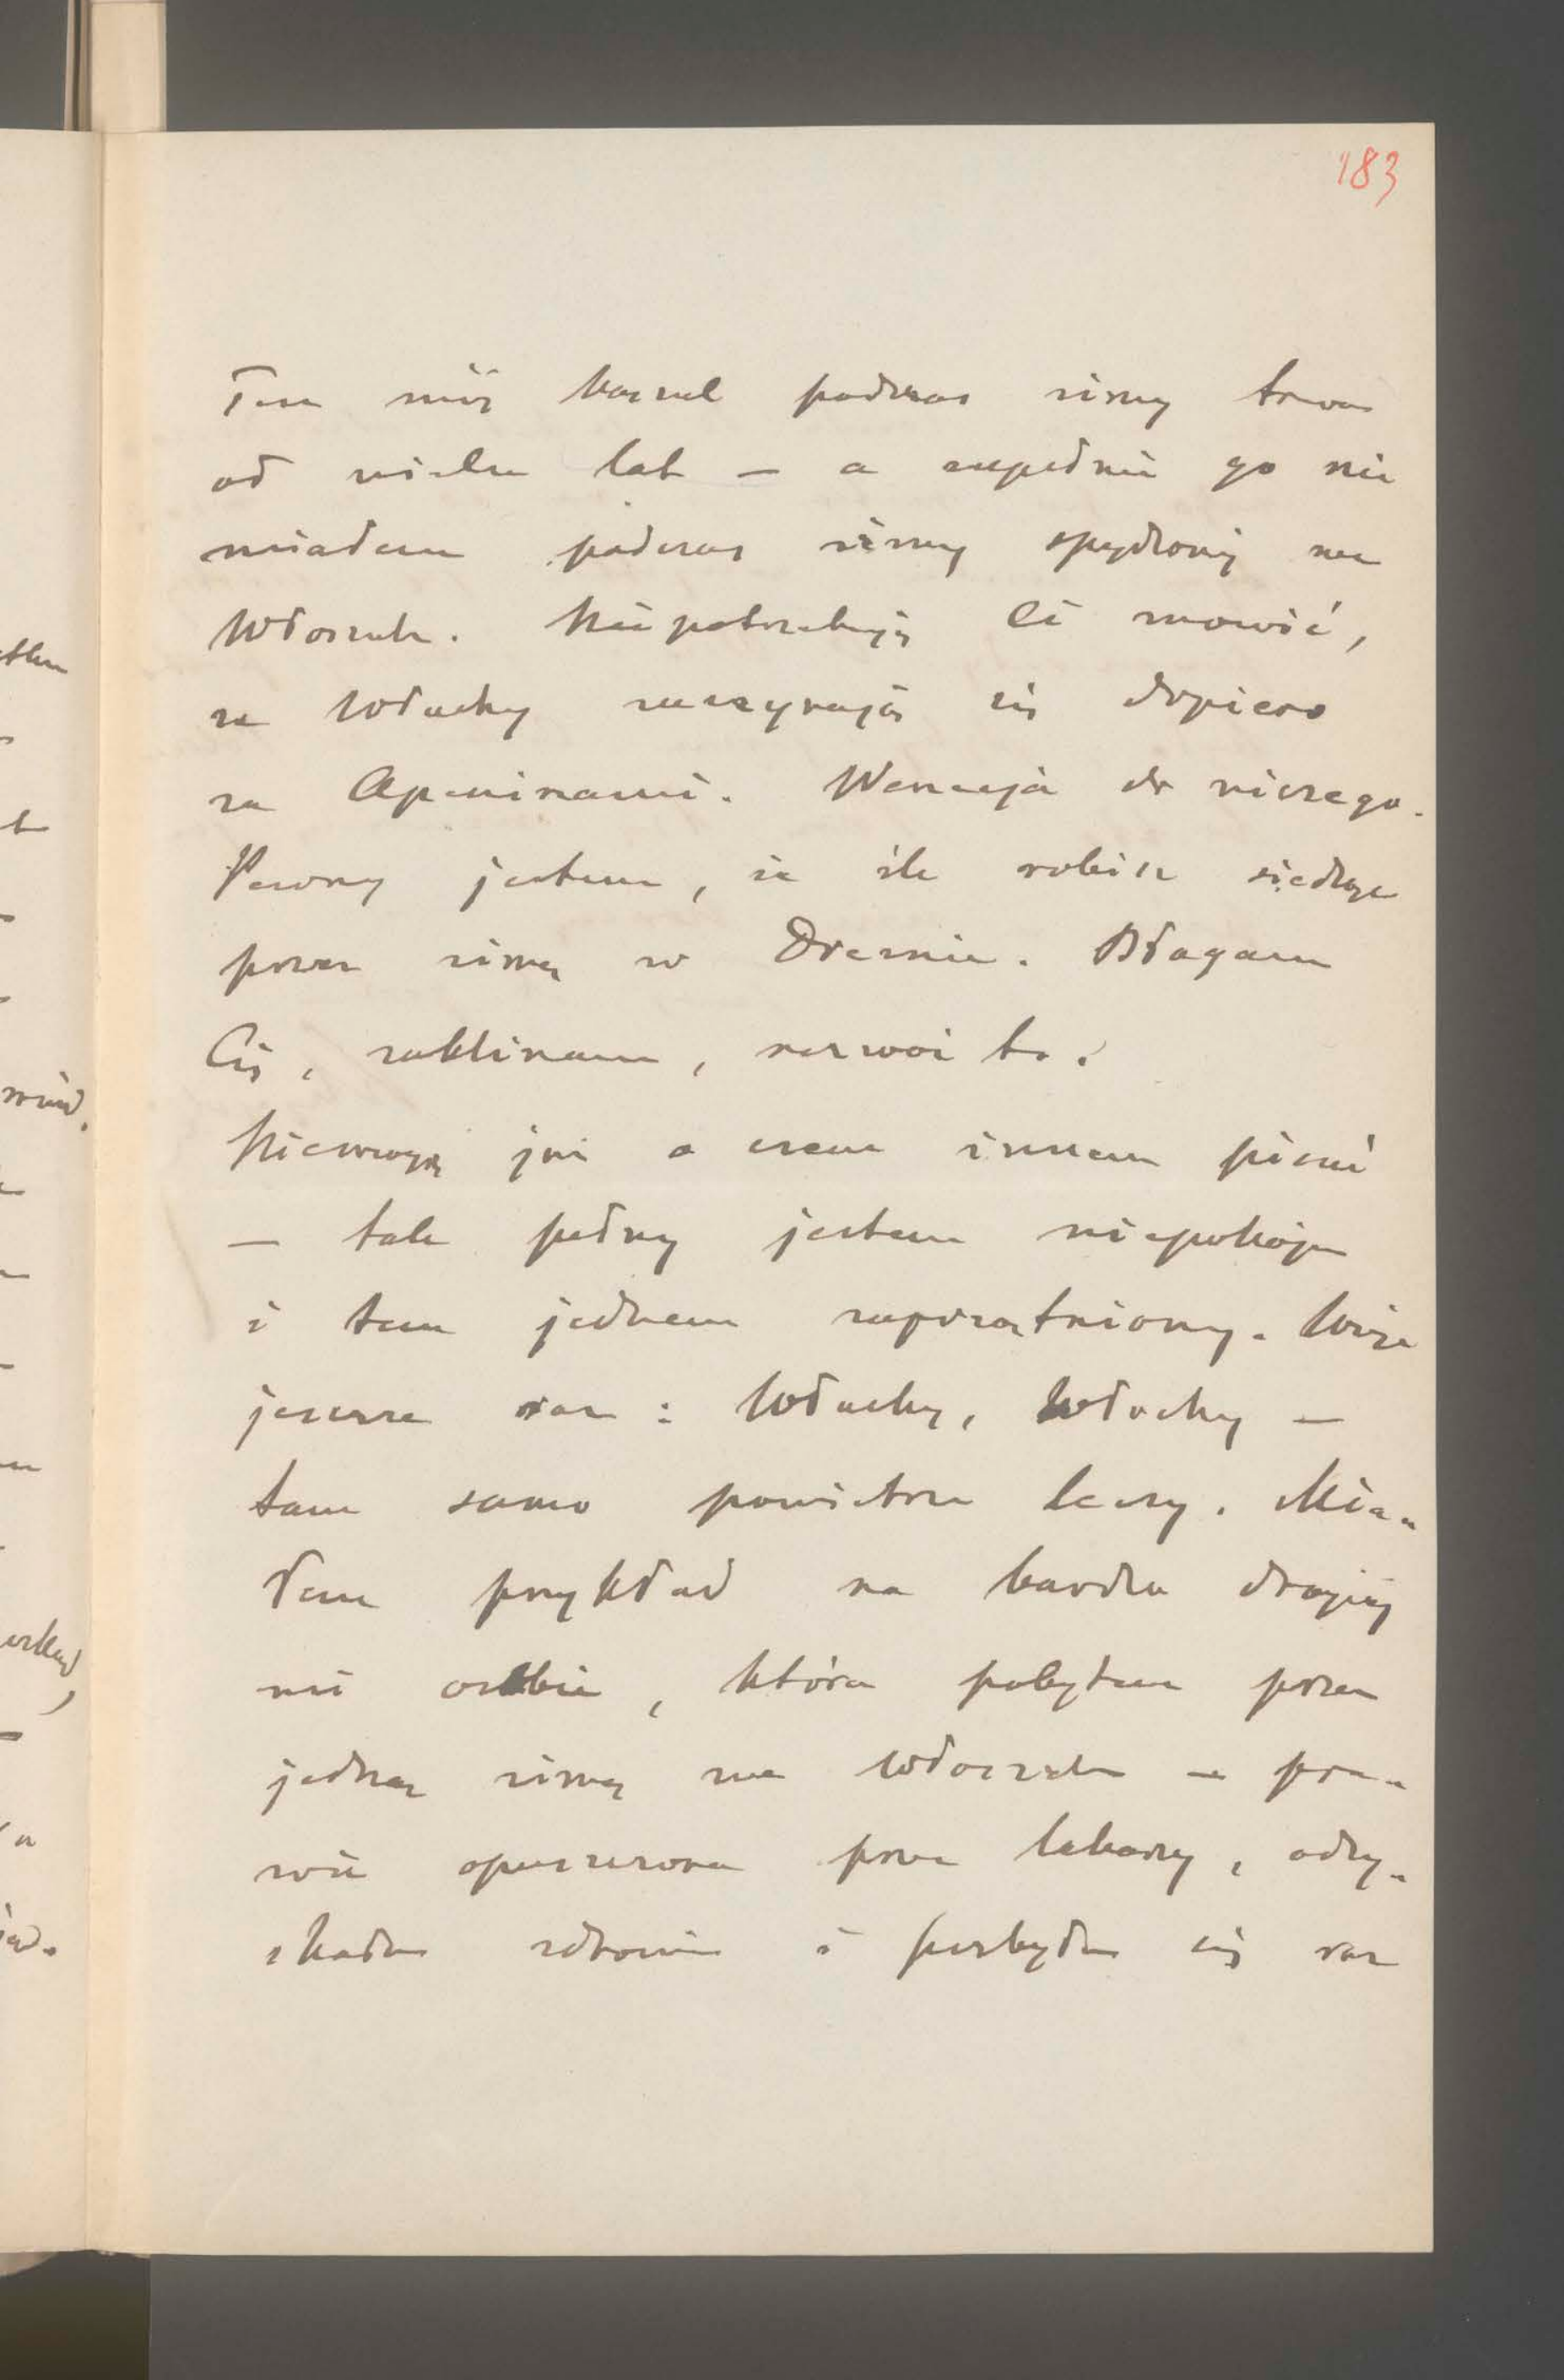 183
Ten mój kaszel podczas zimy trwa
od wielu lat — a zupełnie go nie
miałem podczas zimy spędzonej we
Włoszech. Nie potrzebuję Ci mówić,
że Włochy zaczynają się dopiero
za Apeninami. Wenecja do niczego.
Pewny jestem, że źle robisz siedząc
przez zimę w Dreznie. Błagam
Cię, zaklinam, rozważ to.
Nie mogę już o czem innem pisać
— tak pełny jestem niepokoju
i tem jednem zaprzątniony. Więc
jeszcze raz: Włochy, Włochy —
tam samo powietrze leczy. Mia-
łem przykład na bardzo drogiej
mi osobie, która pobytem przez
jedną zimę we Włoszech — pra-
wie opuszczona przez lekarzy, odzy-
skała zdrowie i pozbyła się raz